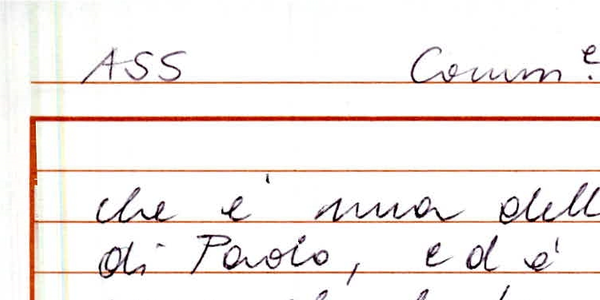 ASS Comm.e
che è una dell
di Paolo, ed è